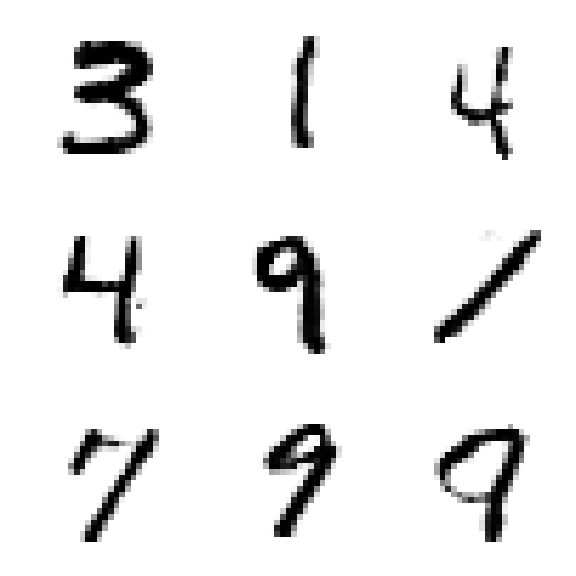 3 1 4
4 9 1
7 9 9